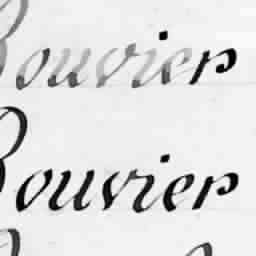 Bouvier
Bouvier